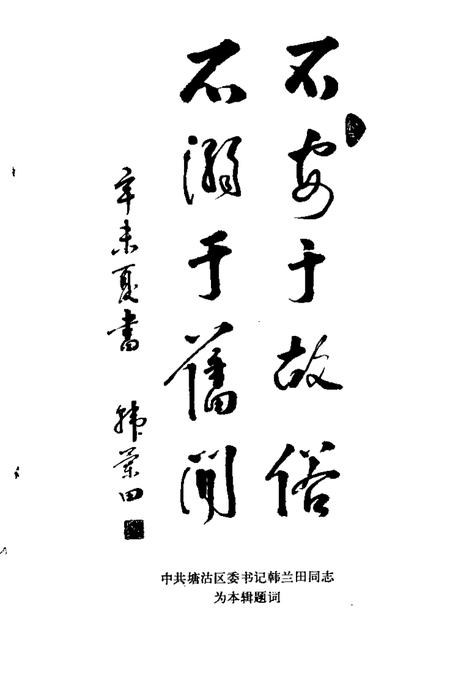 不安于故俗
不溺于舊聞
辛未夏書 韩兰田
中共塘沽区委书记韩兰田同志
为本辑题词